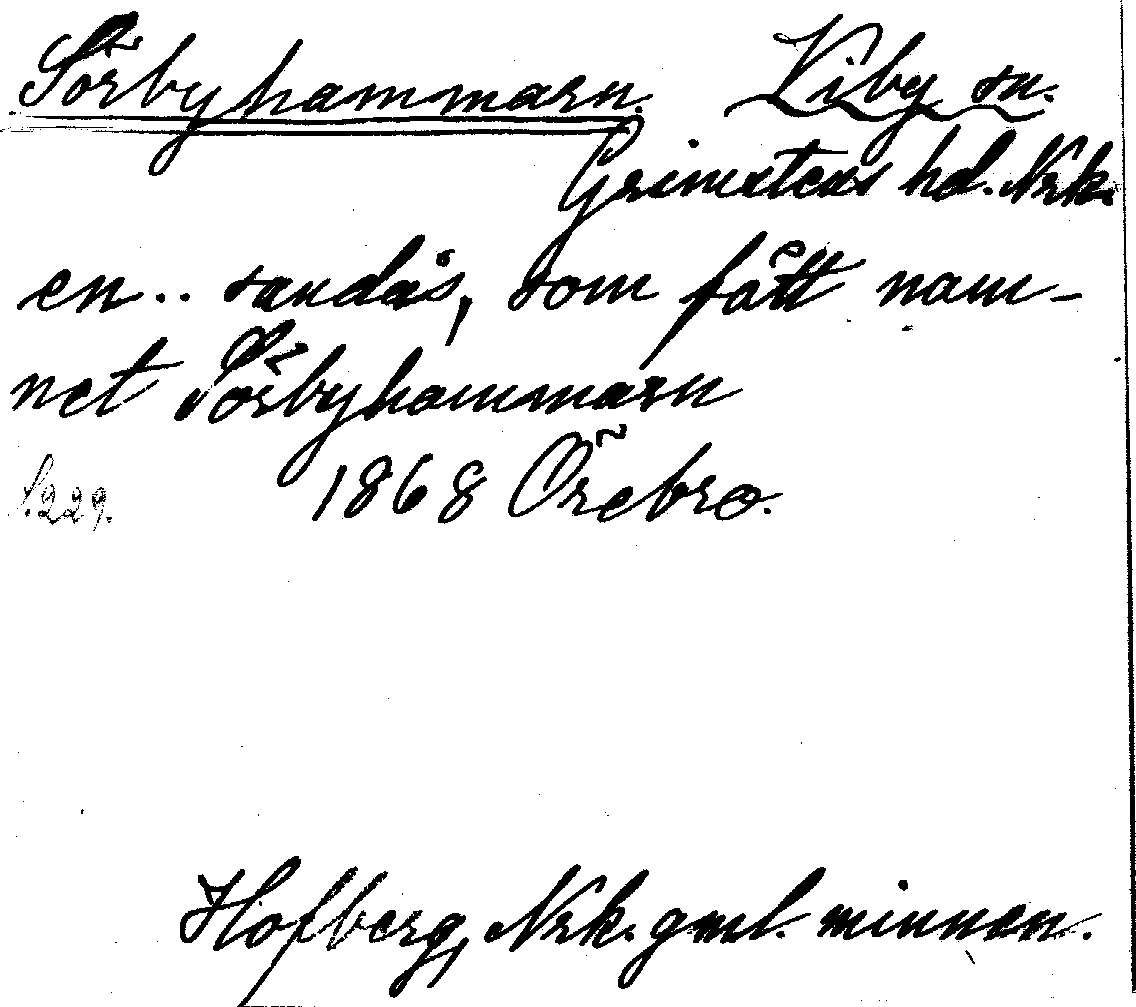 Sörbyhammarn. Viby sn.
Grimstens hd. Nrk.
en .. sandås, som fått nam-
net Sörbyhammarn
S. 229. 1868 Örebro.
Hofberg, Nrk. gml. minnen.